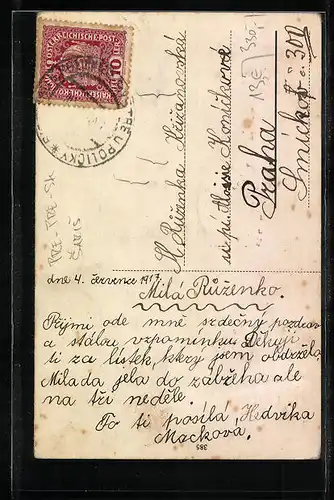 KAISERLICHE KÖNIGLICHE ÖSTERREICHISCHE POST
10
U POLIČKY
13,-
350,-
Sl. Růženka
u sl. p.
Praha
Smíchov: 300
dne 4. července 1917
Milá Růženko.
Přijmi ode mně srdečný pozdrav
a stálou vzpomínku. Děkuji
ti za lístek, který jsem obdržela,
Milada jela do Zábřeha ale
na tři neděle.
To ti posílá, Hedvika
Macková.
385